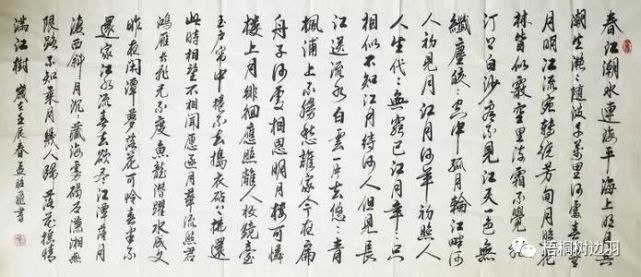 春江潮水連海平海上明月共
潮生灩々隨波千萬里何處春江無
月明江流宛轉繞芳甸月照花
林皆似霰空里流霜不覺飛
汀上白沙看不見江天一色無
纖塵皎々空中孤月輪江畔何
人初見月江月何年初照人
人生代々無窮已江月年々只
相似不知江月待何人但見長
江送流水白雲一片去悠々青
楓浦上不勝愁誰家今夜扁
舟子何處相思明月樓可憐
樓上月徘徊應照離人妝鏡臺
玉戶簾中捲不去搗衣砧上拂還
此時相望不相聞願逐月華流照君
鴻雁長飛光不度魚龍潛躍水成文
昨夜閑潭夢落花可憐春半不
還家江水流春去欲盡江潭落月
復西斜々月沉々藏海霧碣石瀟湘無
限路不知乘月幾人歸落花搖情
滿江樹 歲在壬辰春孟書
梧桐树边羽